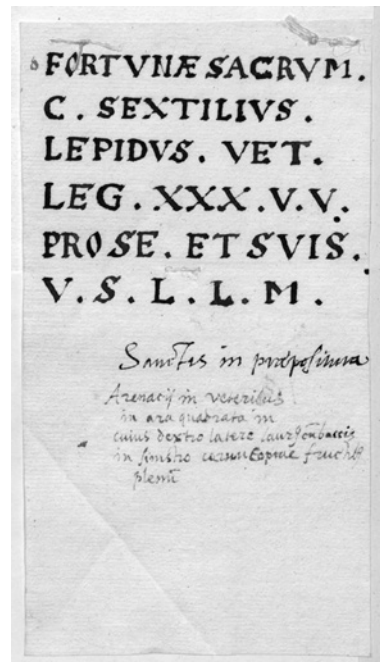 FORTVNÆ SACRVM.
C. SEXTILIVS.
LEPIDVS. VET.
LEG. XXX. V. V.
PRO SE. ET SVIS.
V. S. L. L. M.
Sanctis in præpositura
Arenacij in veteribus
in ara quadrata in
cuius dextro latere laurus
in sinistro cornu Copiae
plenu